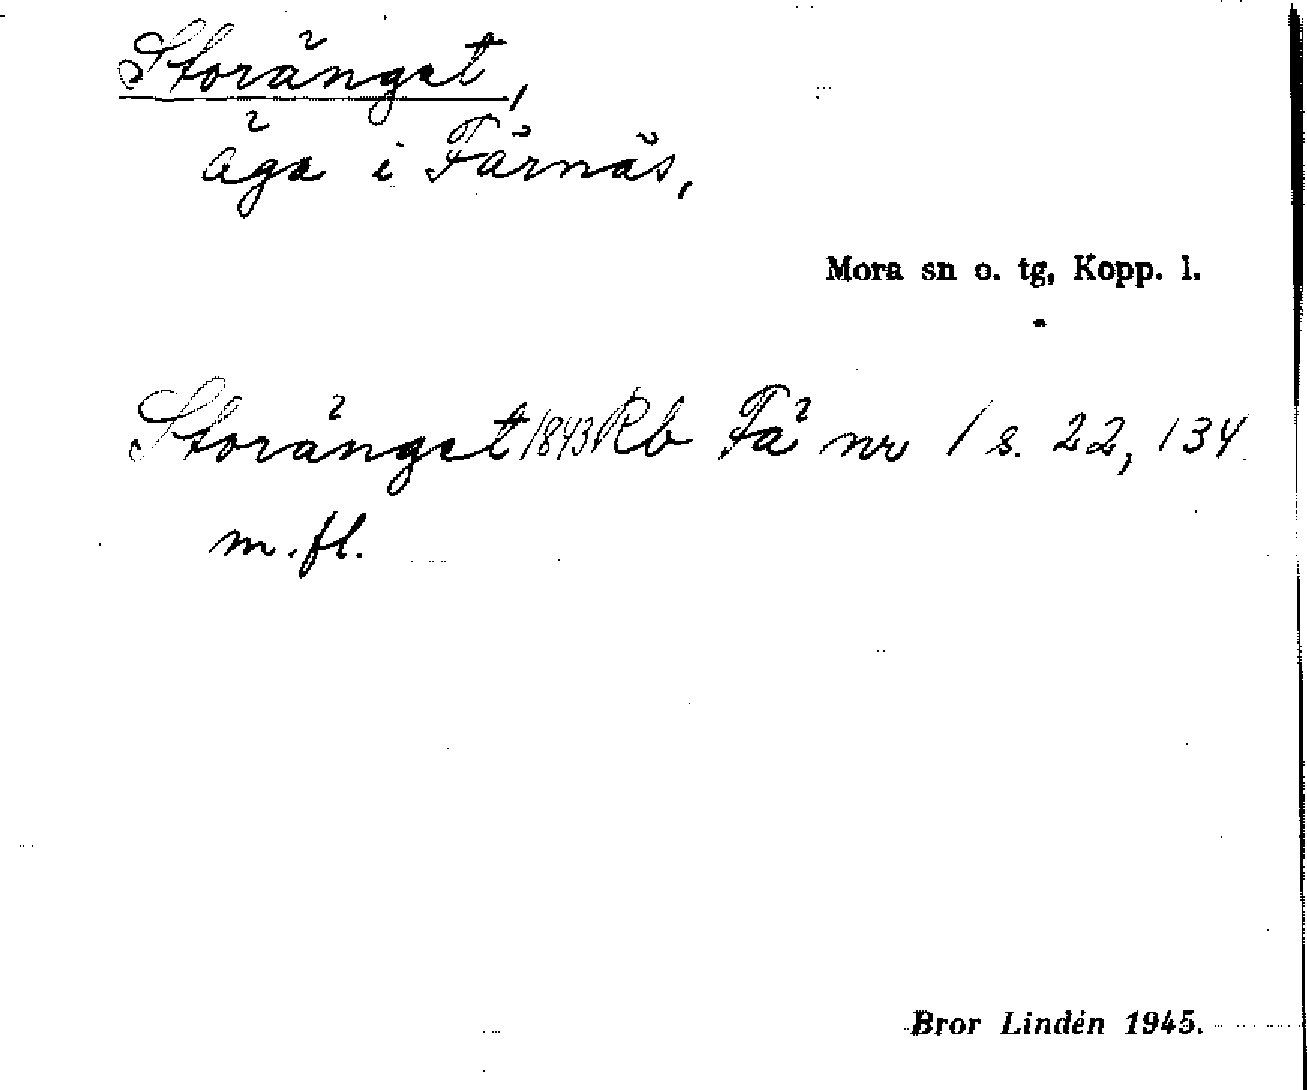 Storänget,
äga i Färnäs,
Mora sn o. tg, Kopp. l.
Storänget 1843 Rb Fä nr 1 s. 22, 134
m. fl.
Bror Lindén 1945.